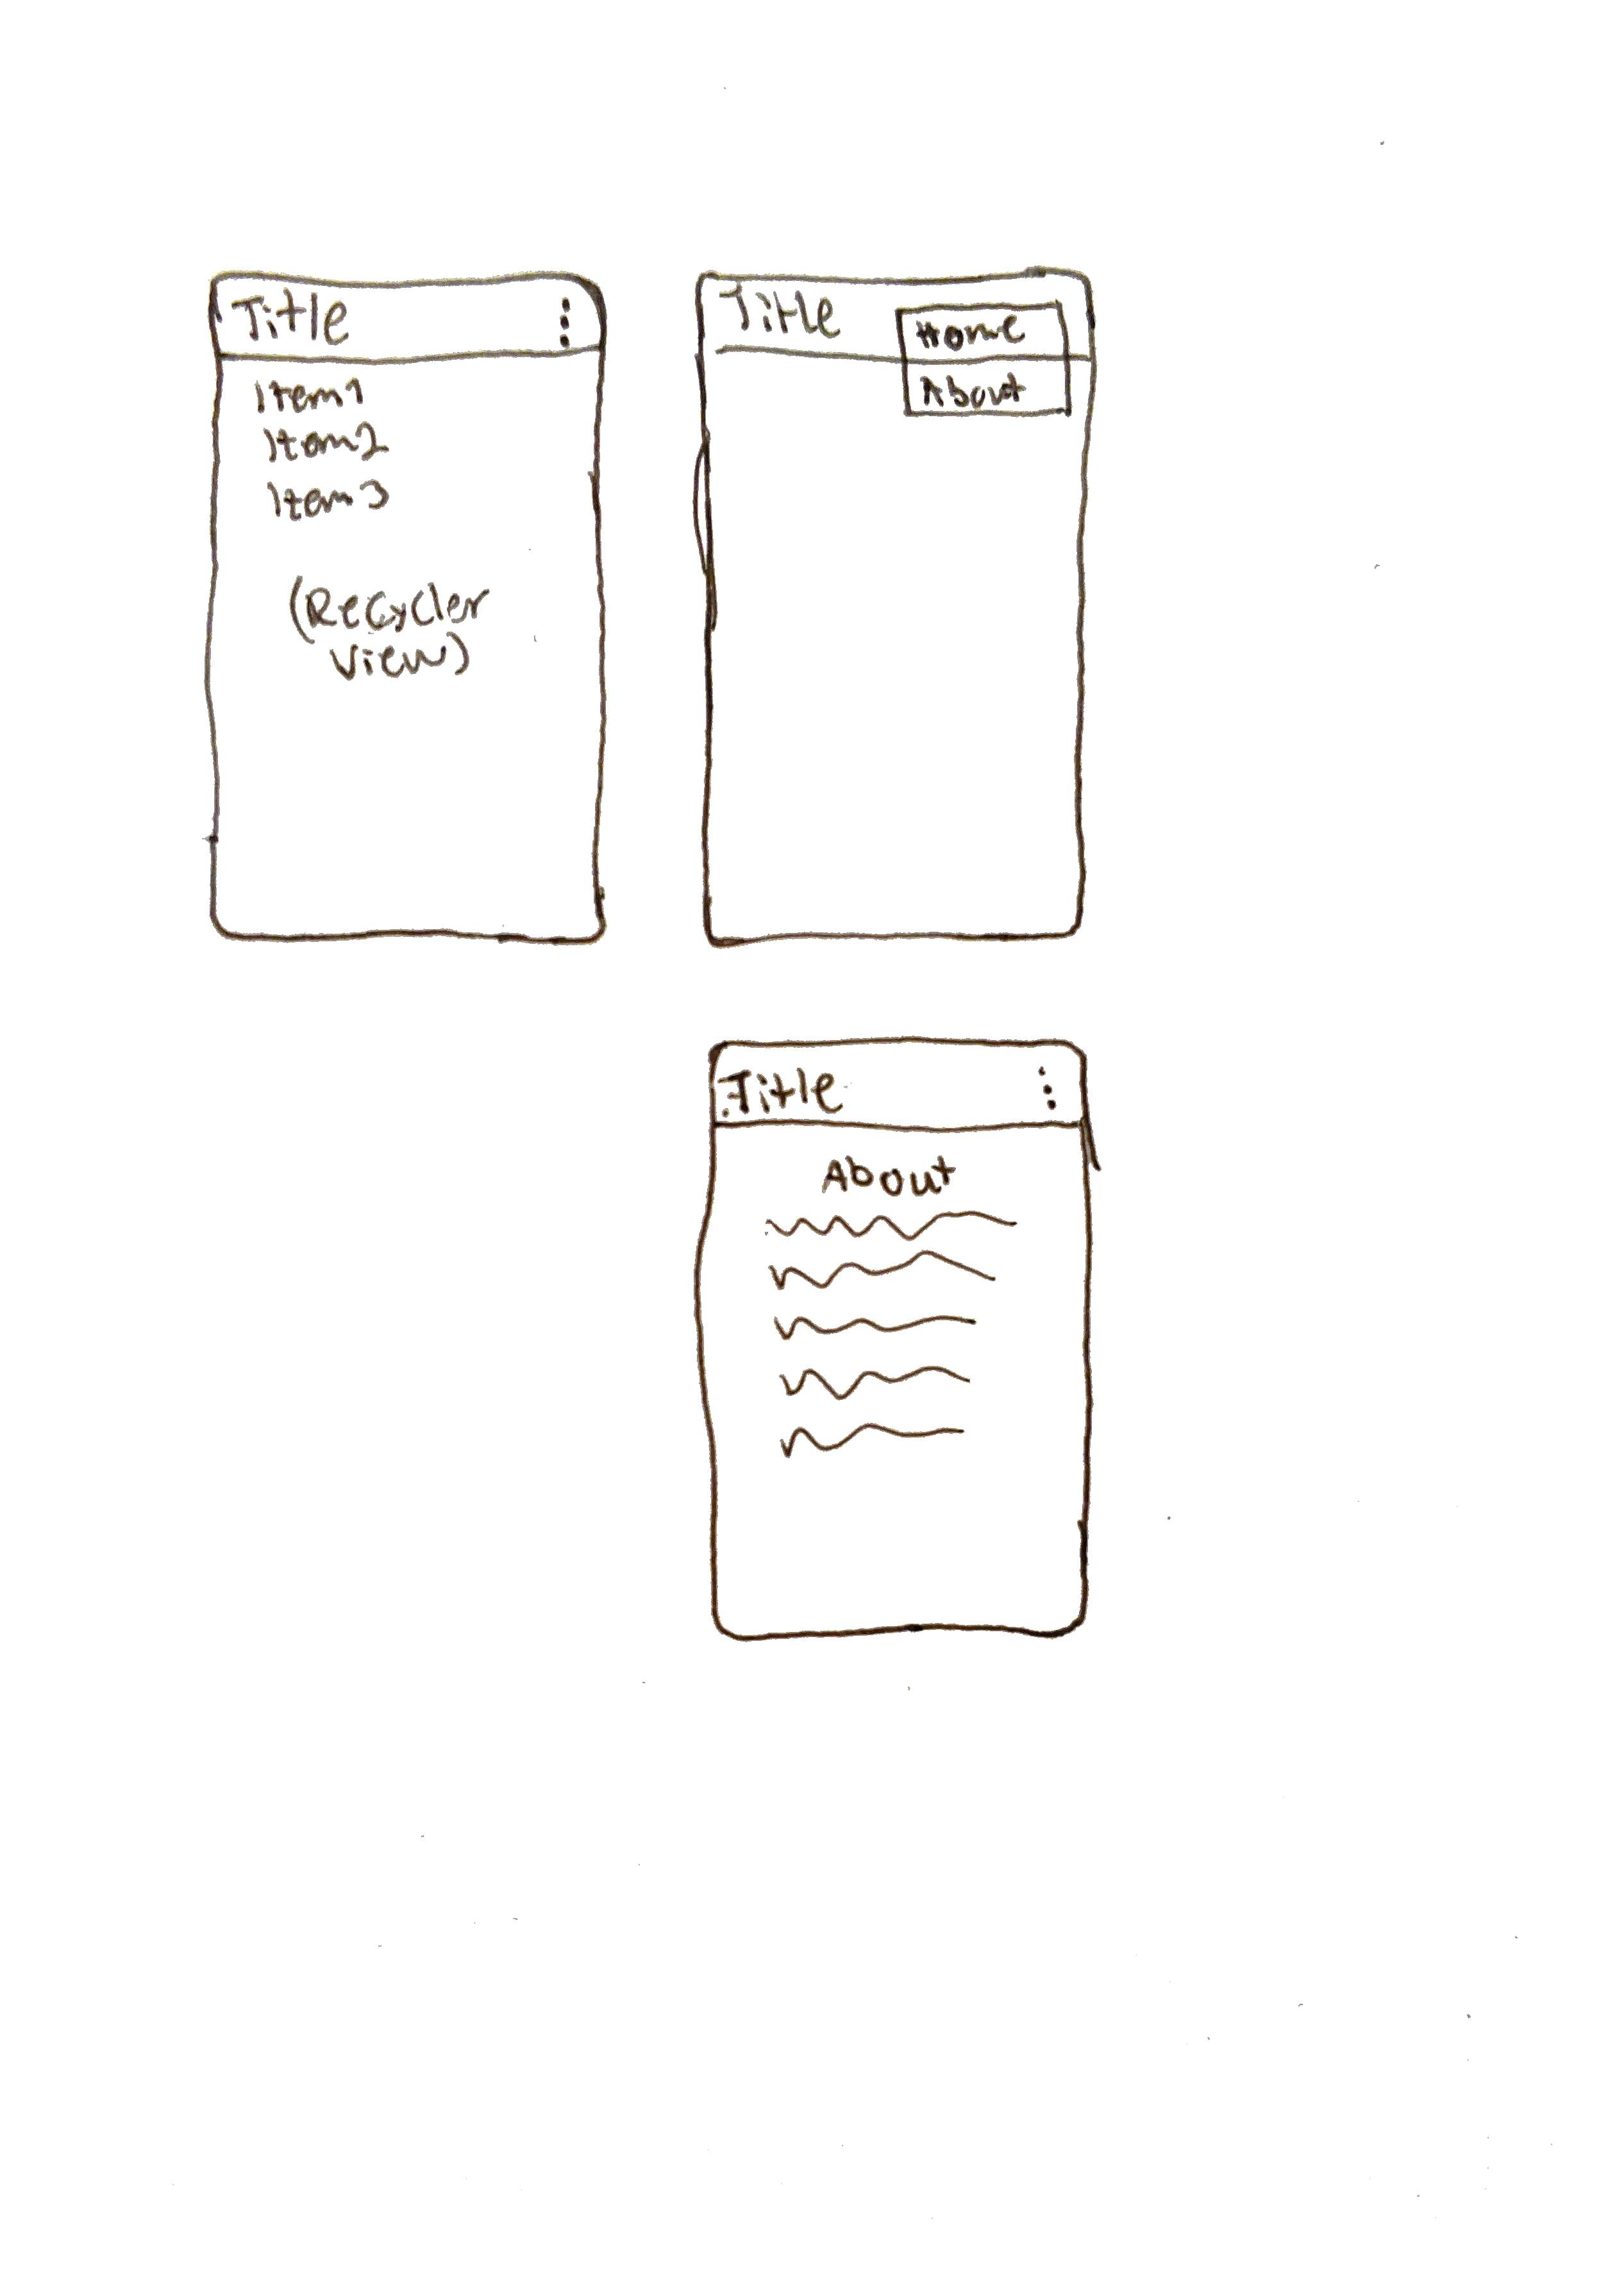 Title
Item1
Item2
Item3
(Recycler
View)
Title
Home
About
Title
About